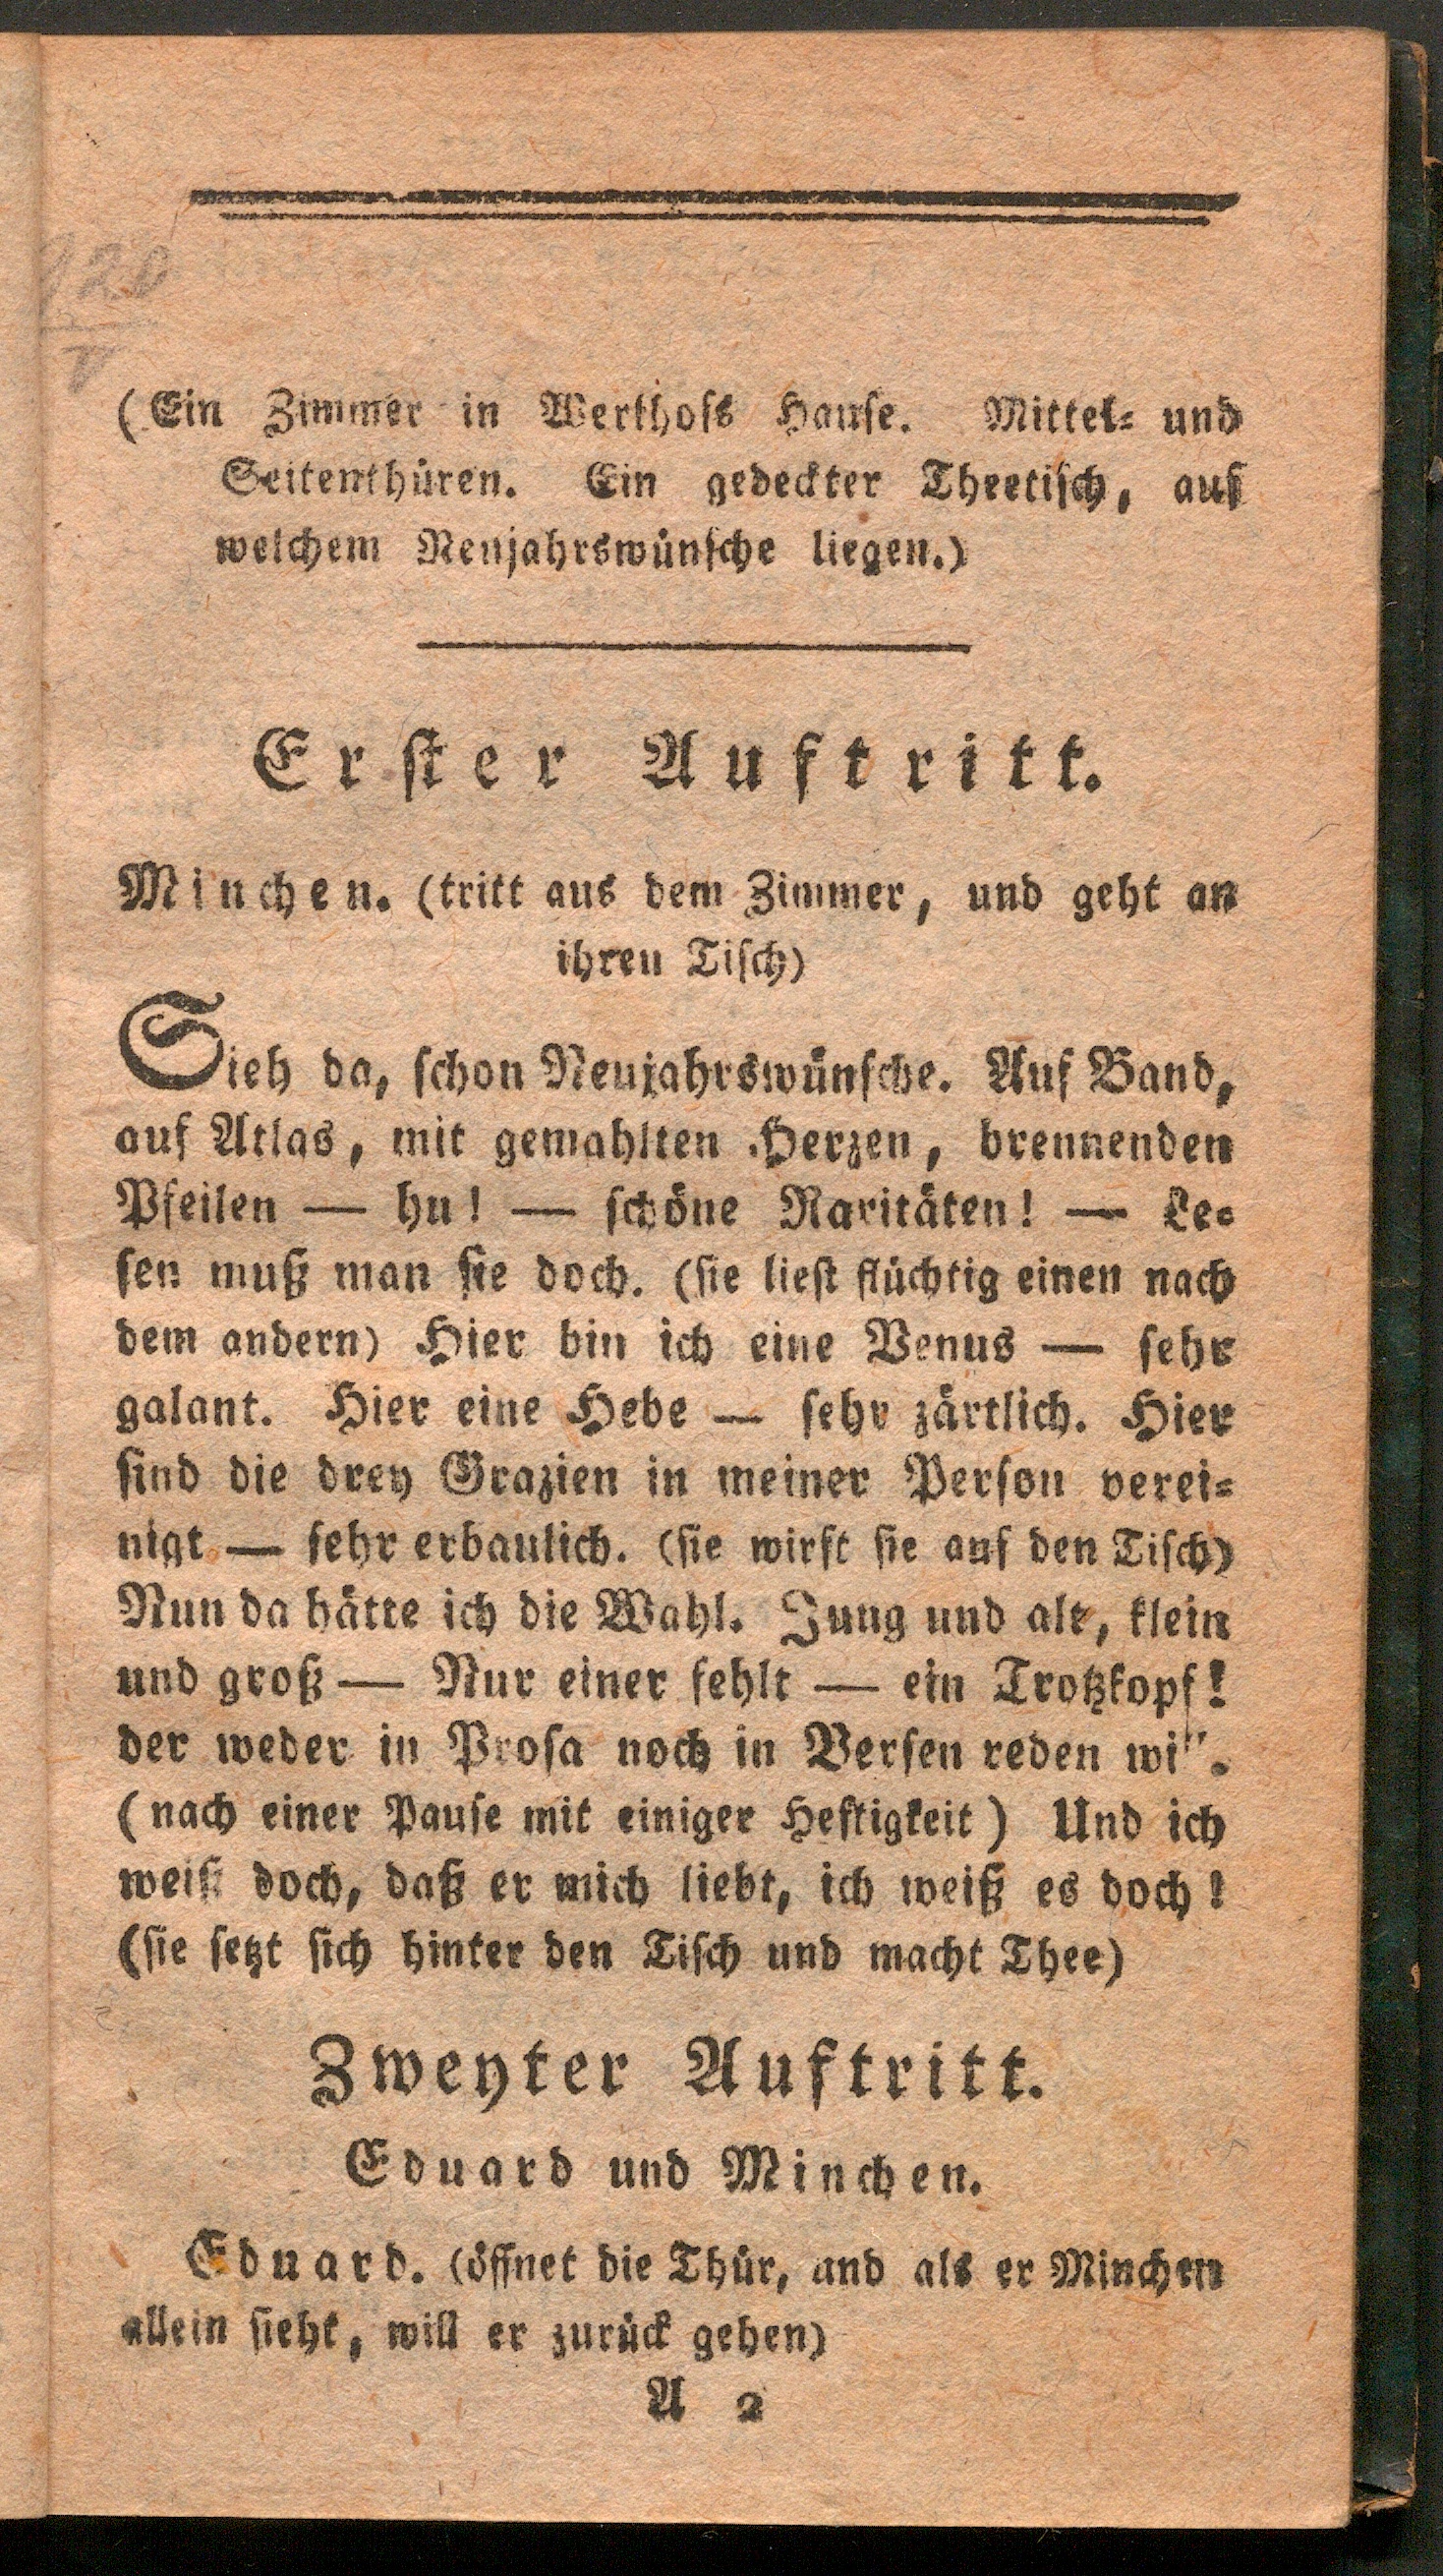 120
(Ein Zimmer in Werthofs Hause. Mittel- und
Seitenthüren. Ein gedeckter Theetisch, auf
welchem Neujahrswünsche liegen.)
Erster Auftritt.
Minchen. (tritt aus dem Zimmer, und geht an
ihren Tisch)
Sieh da, schon Neujahrswünsche. Auf Band,
auf Atlas, mit gemahlten Herzen, brennenden
Pfeilen — hu! — schöne Raritäten! — Le-
sen muß man sie doch. (sie liest flüchtig einen nach
dem andern) Hier bin ich eine Venus — sehr
galant. Hier eine Hebe — sehr zärtlich. Hier
sind die drey Grazien in meiner Person verei-
nigt — sehr erbaulich. (sie wirft sie auf den Tisch)
Nun da hätte ich die Wahl. Jung und alt, klein
und groß — Nur einer fehlt — ein Trotzkopf!
der weder in Prosa noch in Versen reden will.
(nach einer Pause mit einiger Heftigkeit) Und ich
weiß doch, daß er mich liebt, ich weiß es doch!
(sie setzt sich hinter den Tisch und macht Thee)
Zweyter Auftritt.
Eduard und Minchen.
Eduard. (öffnet die Thür, und als er Minchen
allein sieht, will er zurück gehen)
A 2